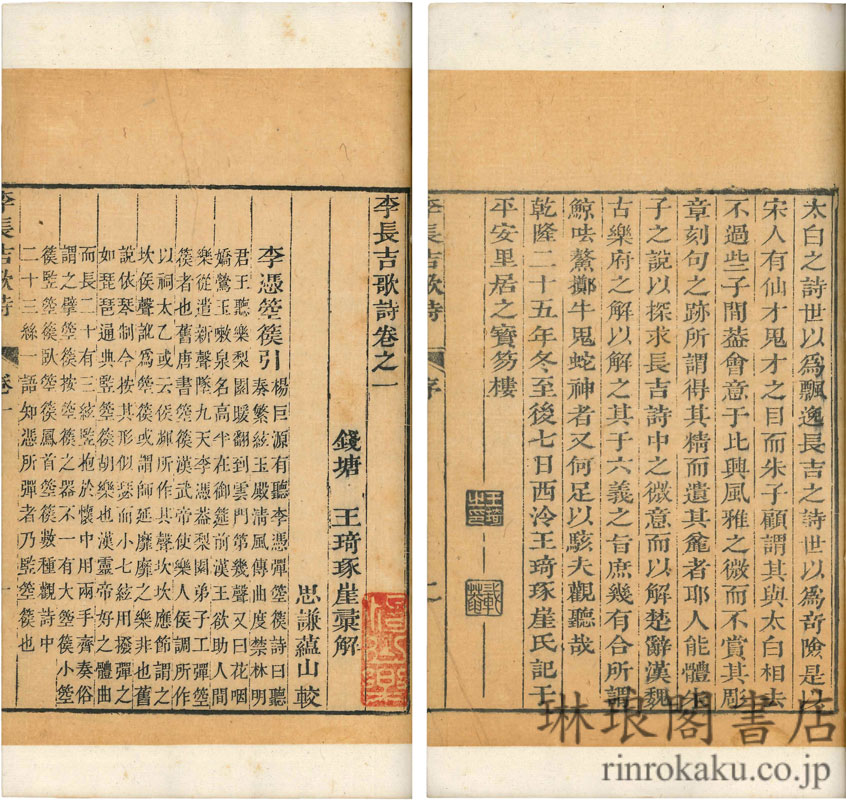 太白之詩世以爲飄逸長吉之詩世以爲奇險是以
宋人有仙才鬼才之目而朱子顧謂其與太白相去
不過些子間葢會意于比興風雅之微而不賞其彫
章刻句之跡所謂得其精而遺其麄者耶人能體朱
子之說以探求長吉詩中之微意而以解楚辭漢魏
古樂府之解以解之其于六義之旨庶幾有合所謂
鯨呿鰲擲牛鬼蛇神者又何足以駭夫觀聽哉
乾隆二十五年冬至後七日西泠王琦琢崖氏記于
平安里居之寶笏樓
王琦之印
載菴
李長吉歌詩
序
二
李長吉歌詩卷之一
錢塘 王琦琢崖彙解
思謙蘊山較
李憑箜篌引
楊巨源有聽李憑彈箜篌詩曰聽
奏繁絃玉殿清風傳曲度禁林明
君王聽樂梨園暖翻到雲門第幾聲又曰花咽
嬌鶯玉嗽泉名高半在御筵前漢王欲助人間
樂從遣新聲墜九天李憑葢梨園弟子工彈箜
篌者也舊唐書箜篌漢武帝使樂人侯調所作
以祠太乙或云侯輝所作其聲坎坎應節謂之
坎侯聲訛爲箜篌或謂師延靡靡之樂非也舊
說依琴制今按其形似瑟而小七絃用撥彈之
如琵琶通典豎箜篌胡樂也漢靈帝好之體曲
而長二十有三絃豎抱於懷中用兩手齊奏俗
謂之擘箜篌按箜篌之器不一有大箜篌小箜
篌豎箜篌臥箜篌鳳首箜篌數種觀詩中
二十三絲一語知憑所彈者乃豎箜篌也
李長吉歌詩
卷一
一
琳琅閣書店
rinrokaku.co.jp